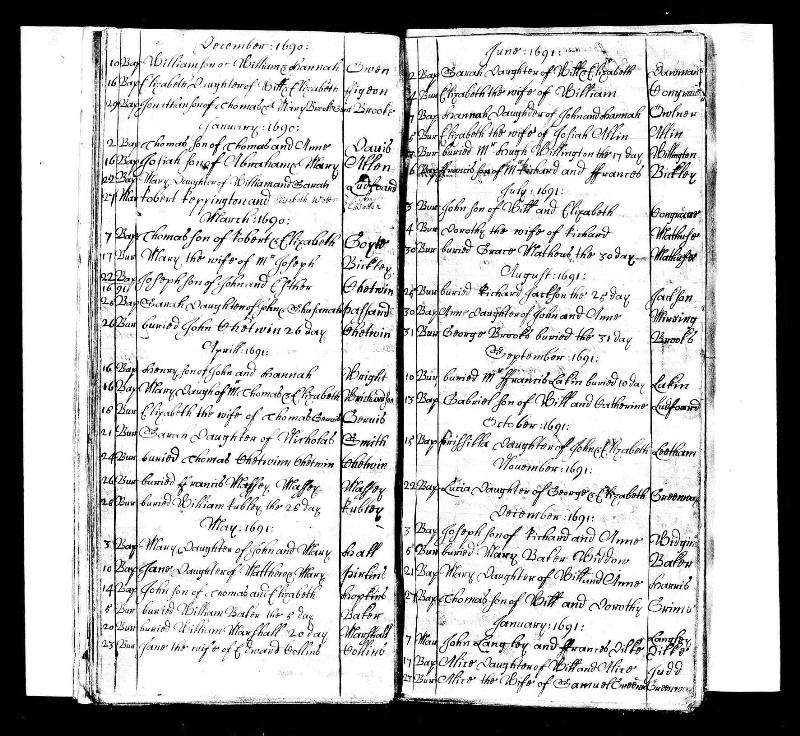 December: 1690:
10 Bap William son of William & Hannah Owen
16 Bap Elizabeth Daughter of Will & Elizabeth
29 Bap Jonathan son of Thomas & Mary Brooks Brooks
January: 1690:
2 Bap Thomas son of Thomas and Anne Davis
16 Bap Josiah son of Abraham & Mary Allen
22 Bap Mary Daughter of William and Sarah Ludford
27 Mar Robert Peppington and
March: 1690:
7 Bap Thomas son of Robert & Elizabeth
17 Bur Mary the wife of Mr Joseph Bickley
22 Bap Joseph son of John and Esther Chetwin
1691
26 Bap Sarah Daughter of John & Shusanah Hassard
26 Bur buried John Chetwin 26 day Chetwin
Aprill: 1691:
16 Bap Henry son of John and Hannah Wright
16 Bap Mary Daugh of Mr Thomas & Elizabeth
18 Bur Elizabeth the wife of Thomas Gervis Gervis
21 Bur Sarah Daughter of Nicholas Smith
24 Bur buried Thomas Chetwinn Chetwin Chetwin
26 Bur buried Francis Massey Massey Massey
28 Bur buried William Rubley the 28 day Rubley
May: 1691:
3 Bap Mary Daughter of John and Mary Hall
10 Bap Jane Daughter of Matthew & Mary
14 Bap John son of Thomas and Elizabeth Hopkins
5 Bur buried William Baker the 5 day Baker
20 Bur buried William Marshall 20 day Marshall
23 Bur Jane the wife of Edward Collins Collins
June: 1691:
2 Bap Sarah Daughter of Will & Elizabeth
4 Bur Elizabeth the wife of William
7 Bap Hannah Daughter of John and Hannah
8 Bur Elizabeth the wife of Josiah Allin Allin
Bur buried Mr Hugh Willington the 17 day Willington
16 Bap Francis son of Mr Richard and Frances Bickley
July: 1691:
3 Bur John son of Will and Elizabeth
4 Bur Dorothy the wife of Richard
30 Bur buried Grace Mathews the 30 day
August: 1691:
25 Bur buried Richard Jackson the 25 day Jackson
30 Bap Ann Daughter of John and Anne
31 Bur George Brooks buried the 31 day Brooks
September: 1691:
10 Bur buried Mr Francis Lakin buried 10 day Lakin
13 Bap Gabriel son of Will and Catherine Ludford
October: 1691:
15 Bap Prissilla Daughter of John & Elizabeth Leetham
November: 1691:
29 Bap Lucia Daughter of George & Elizabeth Greenway
December: 1691:
3 Bap Joseph son of Richard and Anne
5 Bur buried Mary Baker Widdow Baker
21 Bap Mary Daughter of Will and Anne Harris
27 Bap Thomas son of Will and Dorothy Grims
January: 1691:
7 Mar John Langley and Frances Dilke Langley Dilke
17 Bap Alice Daughter of Will and Alice Judd
Bur Alice the Wife of Samuel Greenway Greenway